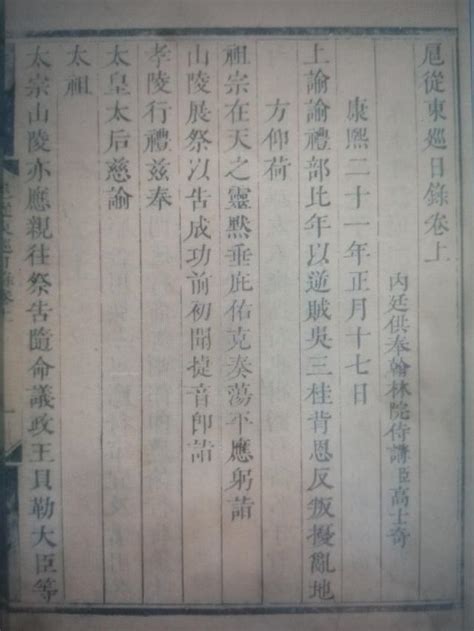 扈從東巡日錄卷上
內廷供奉翰林院侍講臣高士奇
康熙二十一年正月十七日
上諭諭禮部比年以逆賊吳三桂背恩反叛擾亂地
方仰荷
祖宗在天之靈默垂庇佑克奏蕩平應躬詣
山陵展祭以告成功前初聞捷音即詣
孝陵行禮茲奉
太皇太后慈諭
太祖
太宗山陵亦應親往祭告隨命議政王貝勒大臣等